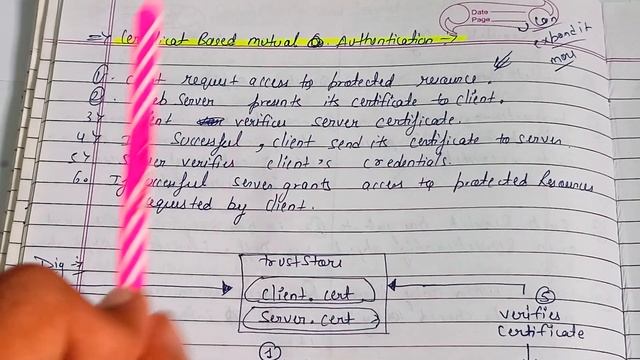 Date
Page
can
bandit
mou
=> Based mutual Authentication ->
1. request access to protected resource.
2. Server presents its certificate to client.
3> verifies server certificate.
4> Successful, client send its certificate to server
5> verifies client's credentials.
6. server grants access to protected Resources
requested by client.
Dig :-
trustStore
client.cert
Server.cert
5
verifies
certificate
1